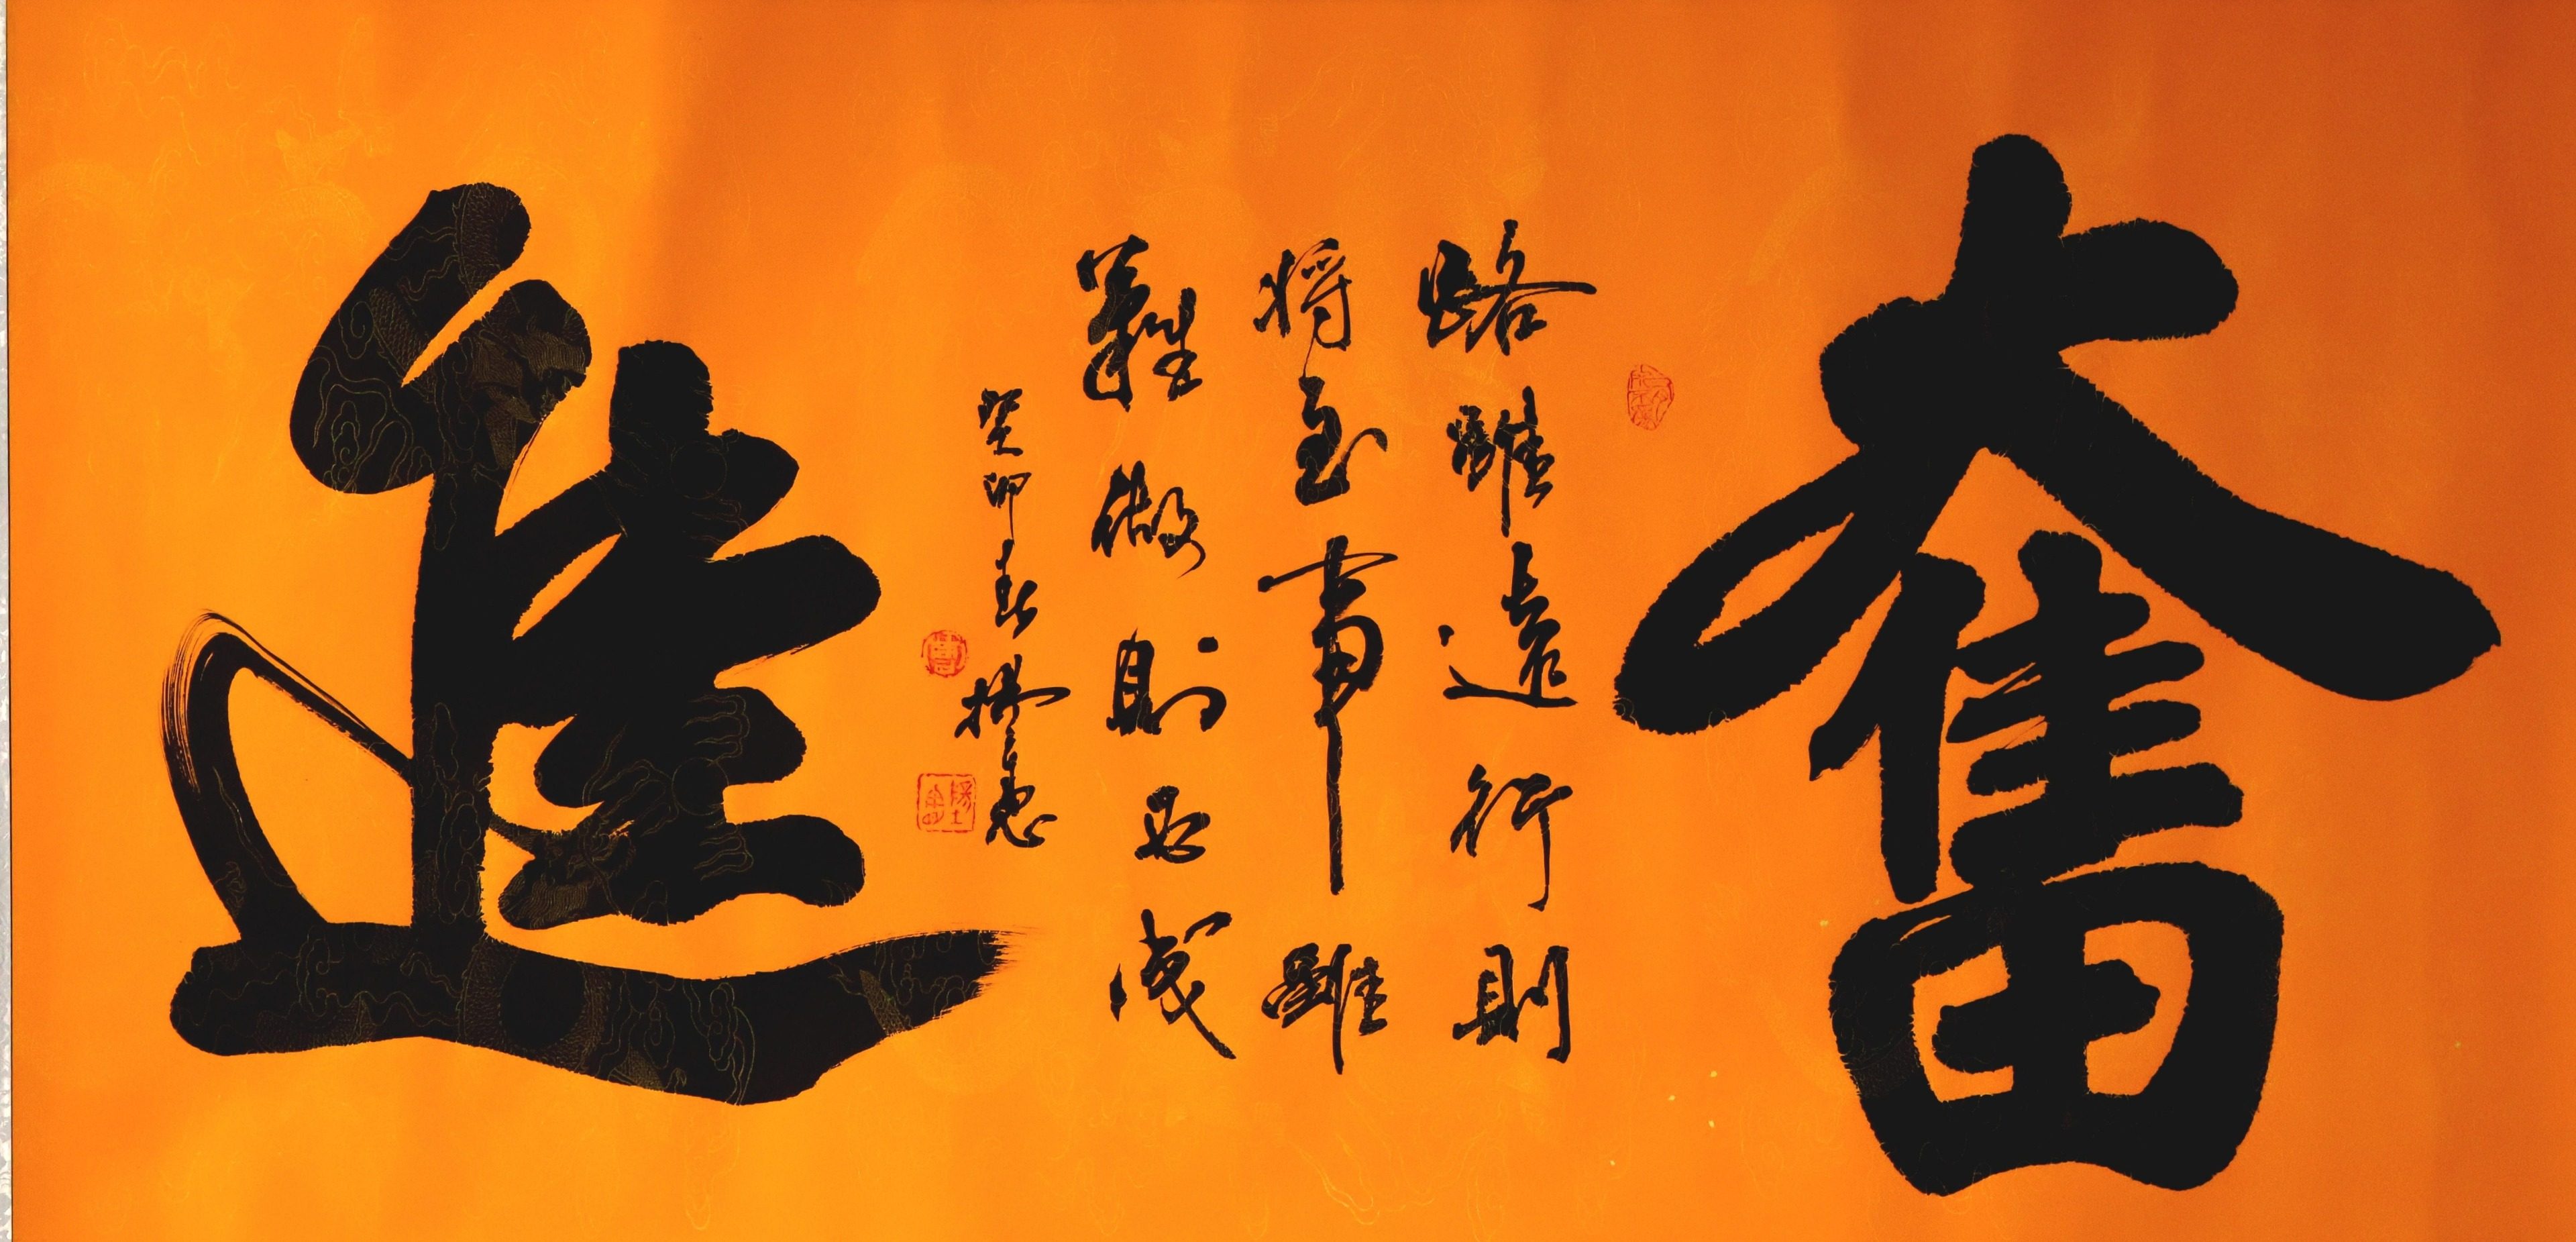 奮進
路雖遠行則
將至事雖
難做則必成
癸卯春楊忠